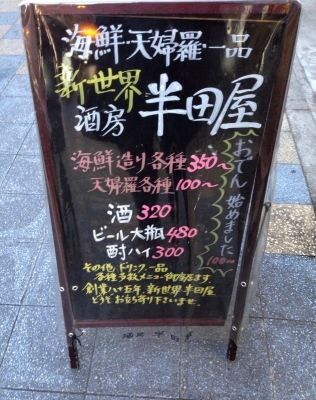 海鮮・天婦羅・一品
新世界
酒房
半田屋
海鮮造り各種350〜
天婦羅各種100〜
おでん始めました
100〜
酒320
ビール大瓶480
酎ハイ300
その他、ドリンク、一品
各種多数メニュー御座居ます
創業八十五年、新世界半田屋
どうぞお立ち寄り下さいませ